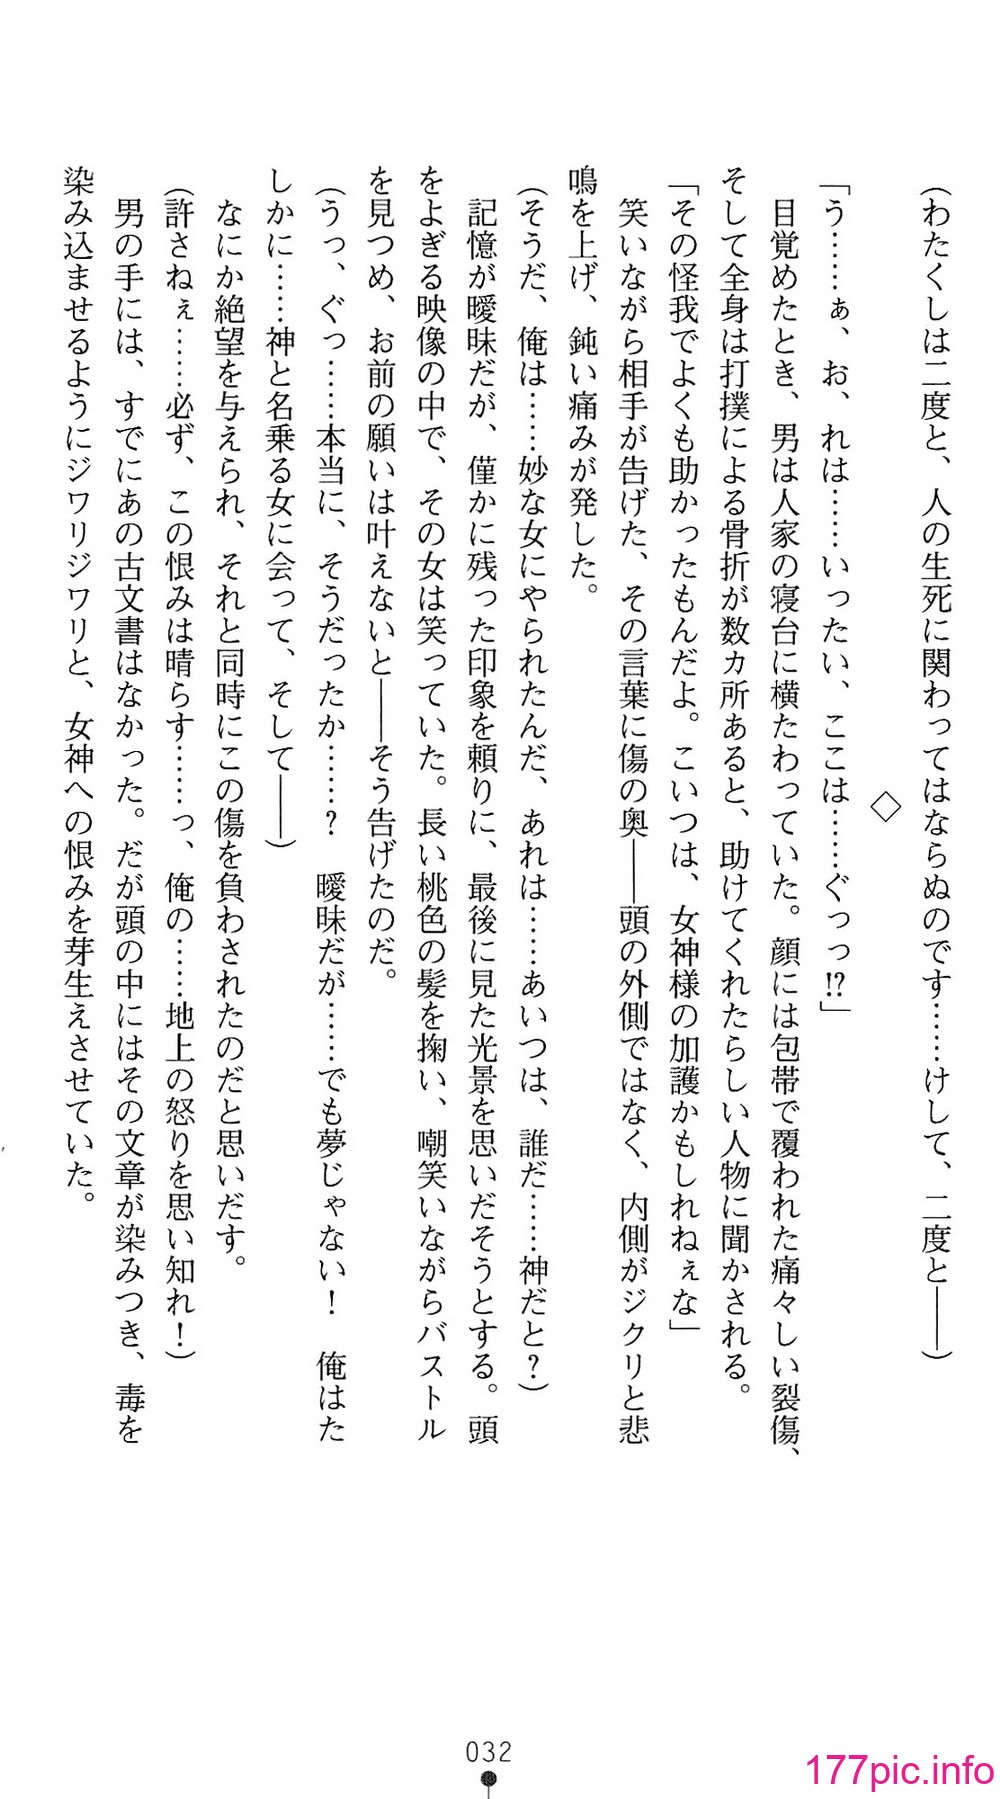 （わたくしは二度と、人の生死に関わってはならぬのです……けして、二度と――）
◇
「う……ぁ、お、れは……いったい、ここは……ぐっっ!?」
　目覚めたとき、男は人家の寝台に横たわっていた。顔には包帯で覆われた痛々しい裂傷、
そして全身は打撲による骨折が数カ所あると、助けてくれたらしい人物に聞かされる。
「その怪我でよくも助かったもんだよ。こいつは、女神様の加護かもしれねぇな」
　笑いながら相手が告げた、その言葉に傷の奥――頭の外側ではなく、内側がジクリと悲
鳴を上げ、鈍い痛みが発した。
（そうだ、俺は……妙な女にやられたんだ、あれは……あいつは、誰だ……神だと？）
　記憶が曖昧だが、僅かに残った印象を頼りに、最後に見た光景を思いだそうとする。頭
をよぎる映像の中で、その女は笑っていた。長い桃色の髪を掬い、嘲笑いながらバストル
を見つめ、お前の願いは叶えないと――そう告げたのだ。
（うっ、ぐっ……本当に、そうだったか……？　曖昧だが……でも夢じゃない！　俺はた
しかに……神と名乗る女に会って、そして――）
　なにか絶望を与えられ、それと同時にこの傷を負わされたのだと思いだす。
（許さねぇ……必ず、この恨みは晴らす……っ、俺の……地上の怒りを思い知れ！）
　男の手には、すでにあの古文書はなかった。だが頭の中にはその文章が染みつき、毒を
染み込ませるようにジワリジワリと、女神への恨みを芽生えさせていた。
032
177pic.info